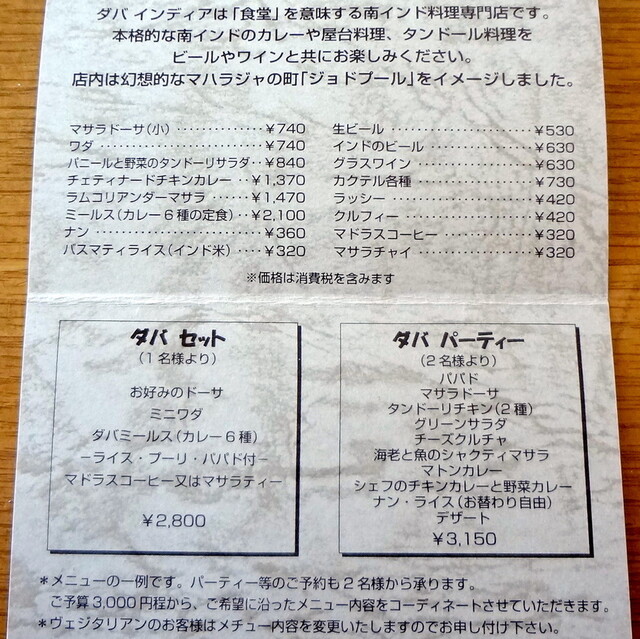 ダバ インディアは「食堂」を意味する南インド料理専門店です。
本格的な南インドのカレーや屋台料理、タンドール料理を
ビールやワインと共にお楽しみください。
店内は幻想的なマハラジャの町「ジョドプール」をイメージしました。
マサラドーサ(小) ‥‥‥‥‥‥‥ ¥740
ワダ ‥‥‥‥‥‥‥‥‥‥‥‥ ¥740
パニールと野菜のタンドーリサラダ‥ ¥840
チェティナードチキンカレー ‥‥ ¥1,370
ラムコリアンダーマサラ ‥‥‥ ¥1,470
ミールス(カレー6種の定食)‥‥ ¥2,100
ナン ‥‥‥‥‥‥‥‥‥‥‥‥ ¥360
バスマティライス(インド米)‥‥‥ ¥320
生ビール ‥‥‥‥‥‥‥‥‥‥ ¥530
インドのビール ‥‥‥‥‥‥‥ ¥630
グラスワイン ‥‥‥‥‥‥‥‥ ¥630
カクテル各種 ‥‥‥‥‥‥‥‥ ¥730
ラッシー ‥‥‥‥‥‥‥‥‥‥ ¥420
クルフィー ‥‥‥‥‥‥‥‥‥ ¥420
マドラスコーヒー ‥‥‥‥‥‥ ¥320
マサラチャイ ‥‥‥‥‥‥‥‥ ¥320
※価格は消費税を含みます
ダバ セット
(1名様より)
お好みのドーサ
ミニワダ
ダバミールス(カレー6種)
−ライス・プーリ・パパド付−
マドラスコーヒー又はマサラティー
¥2,800
ダバ パーティー
(2名様より)
パパド
マサラドーサ
タンドーリチキン(2種)
グリーンサラダ
チーズクルチャ
海老と魚のシャクティマサラ
マトンカレー
シェフのチキンカレーと野菜カレー
ナン・ライス(お替わり自由)
デザート
¥3,150
*メニューの一例です。パーティー等のご予約も2名様から承ります。
ご予算3,000円程から、ご希望に沿ったメニュー内容をコーディネートさせていただきます。
*ヴェジタリアンのお客様はメチュー内容を変更いたしますのでお申し付け下さい。